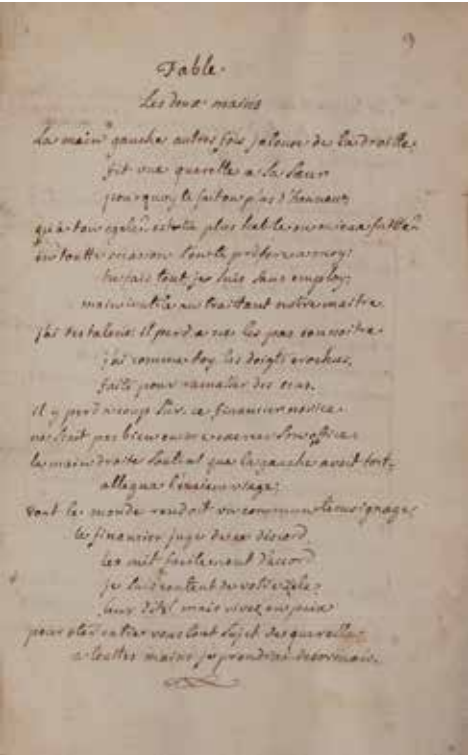 9
Fable.
Les deux mains
La main gauche autres fois jalouse de la droitte
fit une querelle a sa sœur
pourquoy te fait on plus d'honneur
qu'a ton egale? es tu plus habile ou mieux faitte?
en toutte occasion l'on te préfere a moy;
tu fais tout, je suis sans employ;
main inutile au traittant notre maitre
j'ai des talens: il perd a ne les pas connoitre
j'ai comme toy les doigts crochus,
faits pour ramasser des ecus.
il y perd a coup sûr. ce financier novice
ne sçait pas bien encore exercer son office
la main droite soutint que la gauche avoit tort,
allegua l'ancien usage;
tout le monde rendoit un commun temoignage;
le financier juge de ce discord,
les mit facilement d'accord
je suis content de votre zele,
leur dit il mais vivez en paix
pour oter entier vous tout sujet de querelle,
a touttes mains je prendrai desormais.